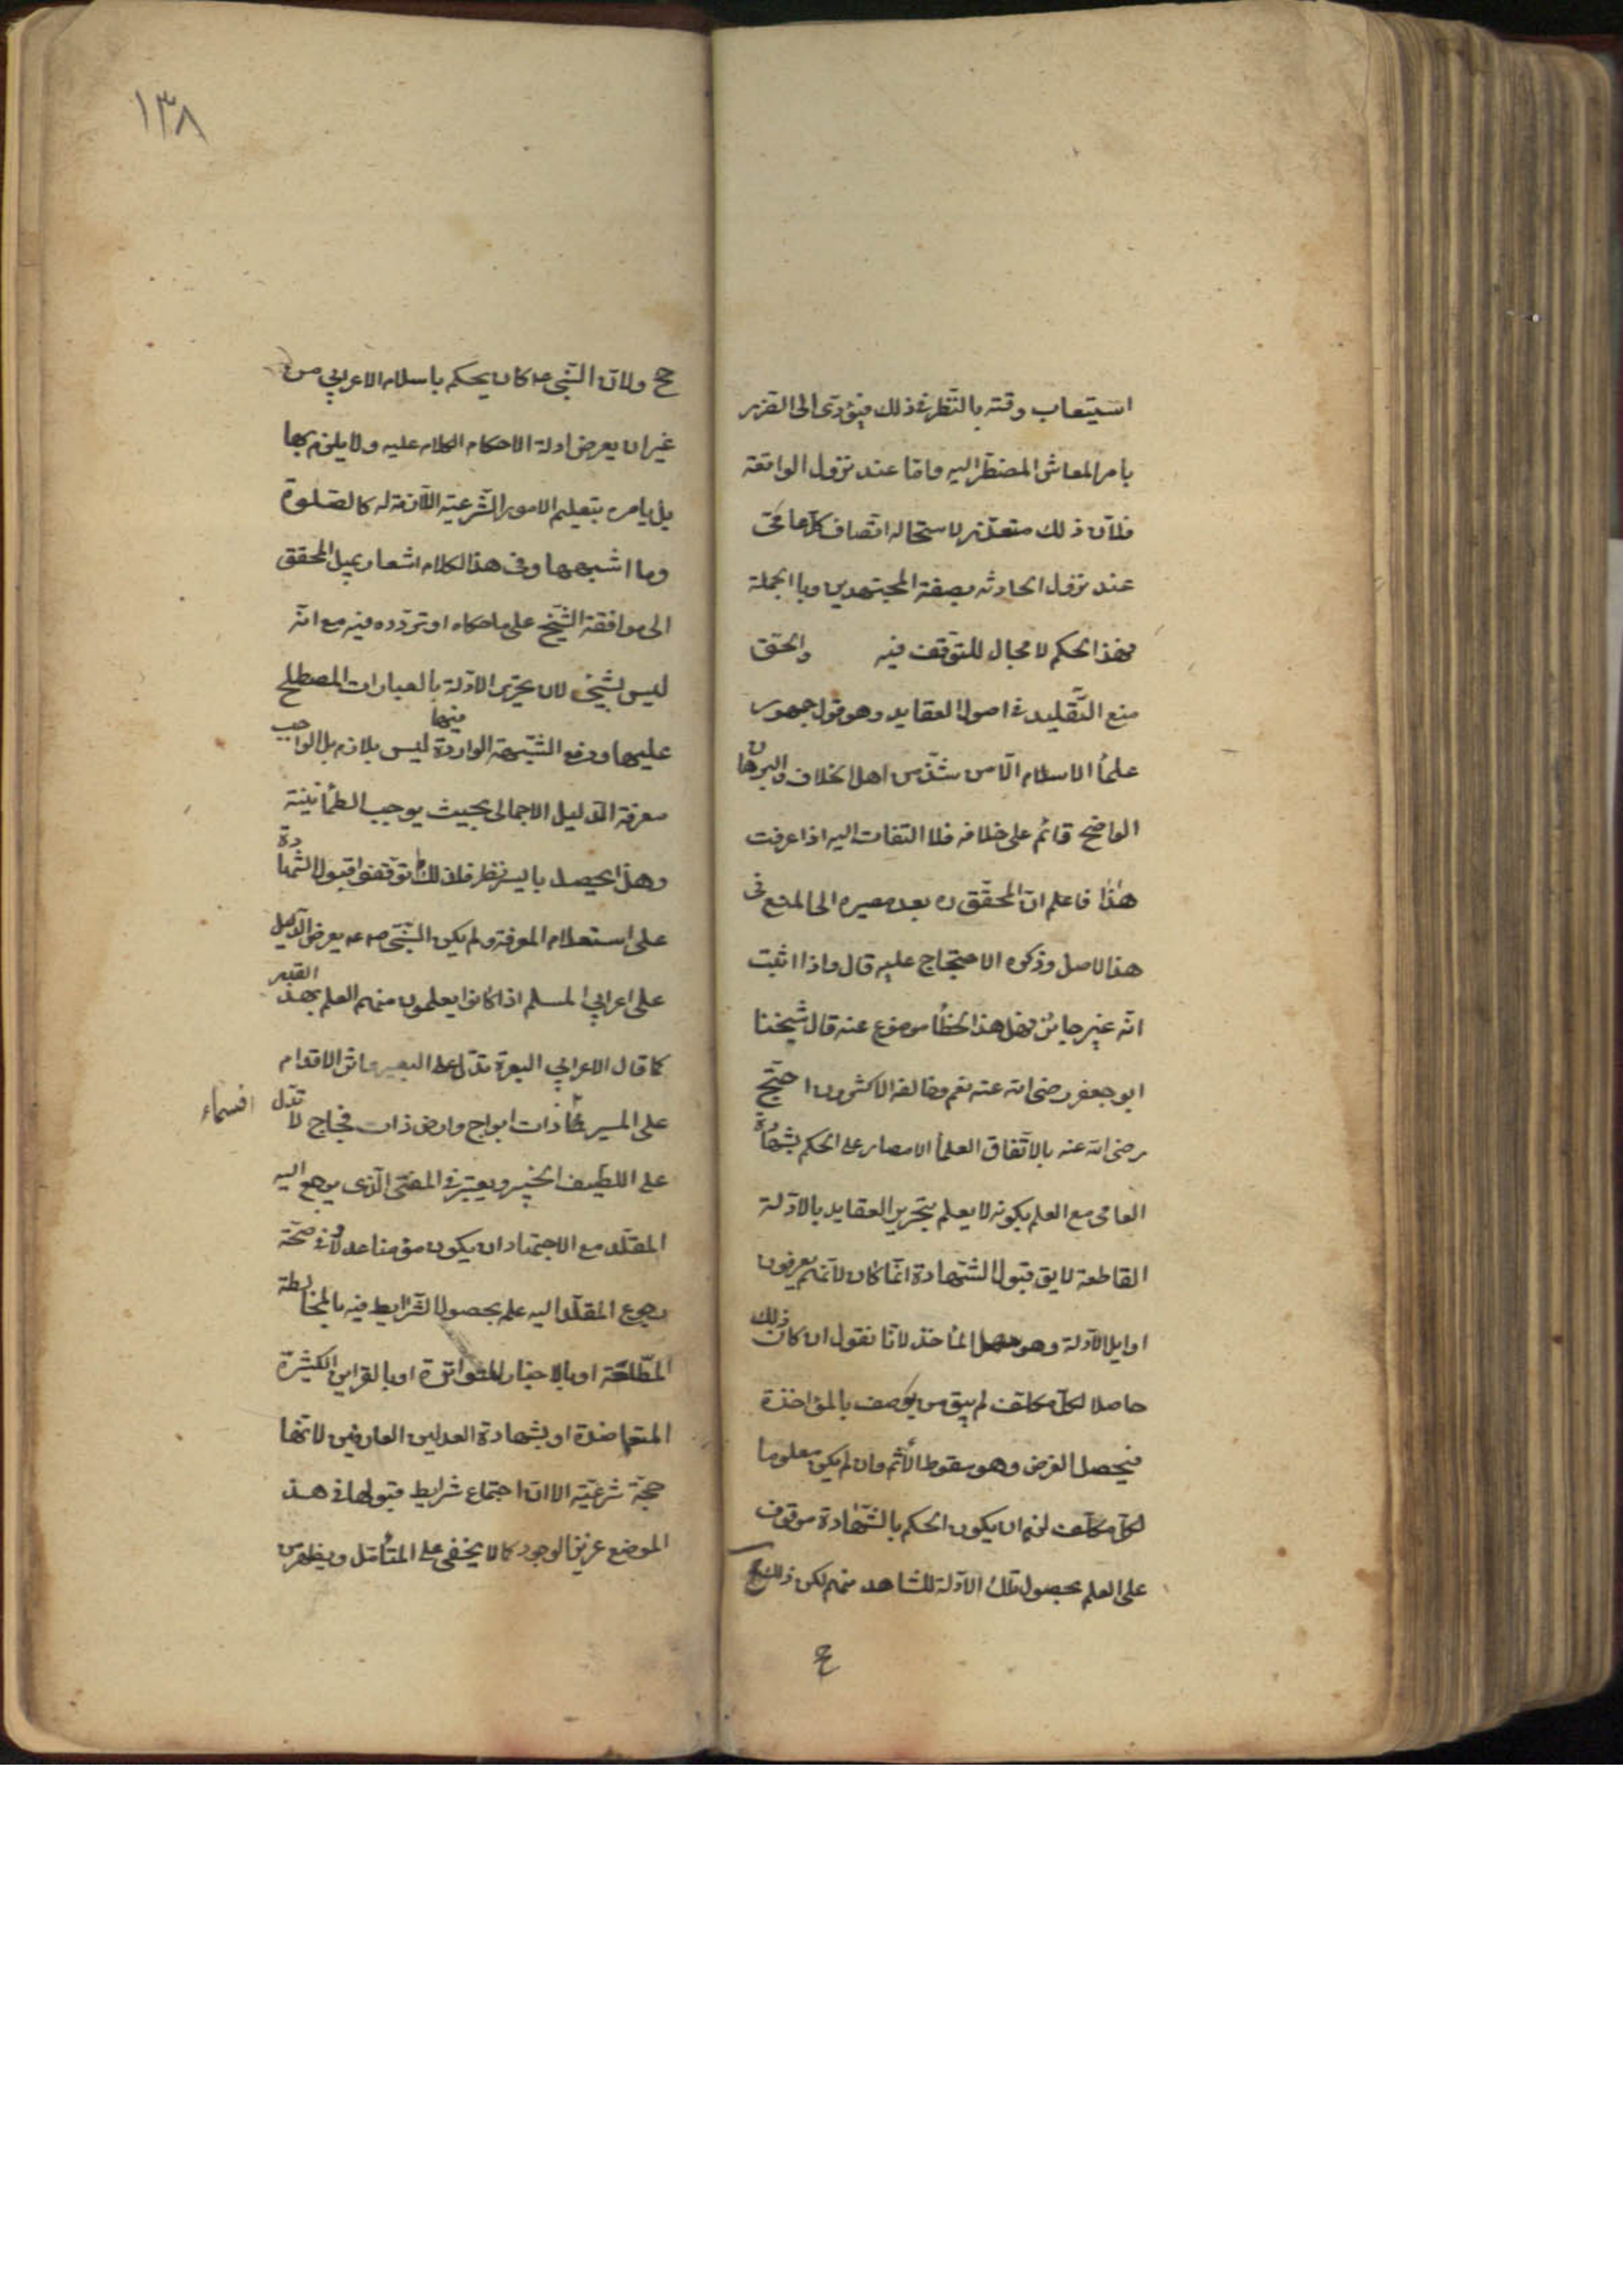 استيعاب وقته بالنظر في ذلك فيؤدى الى الضرر
بامر المعاش المضطر اليه واما عند نزول الواقعة
فلان ذلك متعذر لاستحالة اتصاف كل عامى
عند نزول الحادثه بصفة المجتهدين وبالجملة
فهذا الحكم لا مجال للتوقف فيه والحق
منع التقليد في اصول العقايد وهو قول جمهور
علمأ الاسلام الا من شذ من اهل الخلاف والبرهان
الواضح قائم على خلافه فلا التفات اليه اذا عرفت
هذا فاعلم ان المحقق ره بعد مصيره الى المنع في
هذا الاصل وذكره الاحتجاج عليه قال واذا اثبت
انه غير جايز فهل هذا الخطأ موضوع عنه قال شيخنا
ابو جعفر رضى الله عنه نعم وخالفه الاكثرون احتج
رضى الله عنه بالاتفاق العلمأ الامصار على الحكم بشهادة
العامى مع العلم بكونه لا يعلم بتحرير العقايد بالادلة
القاطعة لا يق قبول الشهادة انما كان لانهم يعرفون
اوايل الادلة وهو سهل المأخذ لانا نقول ان كان ذلك
حاصلا لكل مكلف لم يبق من يوصف بالمؤاخذة
فيحصل الغرض وهو سقوط الأثم وان لم يكن معلوما
لكل مكلف لزم ان يكون الحكم بالشهادة موقوف
على العلم بحصول تلك الادلة للشاهد منهم لكن ذلك مح
ع
١٣٨
مح ولان النبى ص كان يحكم باسلام الاعرابي من
غير ان يعرض ادلة الاحكام الكلام عليه ولا يلزم بها
بل يامره بتعليم الامور الشرعية اللازمة له كالصلوة
وما اشبهها وفى هذا الكلام اشعار بميل المحقق
الى موافقة الشيخ على ما حكاه او تردده فيه مع انه
ليس بشيخ لان تحرير الادلة بالعبارات المصطلح
عليها ودفع الشبهة الواردة فيها ليس بلازم بل الواجب
معرفة الدليل الاجمالى بحيث يوجب الطمأنينة
وهذا يحصل بايسر نظر فلذلك لم توقفوا قبول الشهادة
على استعلام المعرفة ولم يكن النبى ص عه يعرض الدليل
على اعرابي المسلم اذا كانوا يعلمون منهم العلم بهذ القدر
كما قال الاعرابي البعرة تدل على البعير واثر الاقدام
على المسير افسماء ذات ابراج وارض ذات فجاج لا تدل
على اللطيف الخبير ويعتبر في المفتى الذى يرجع اليه
المقلد مع الاجتهاد ان يكون مؤمنا عدلا وفى صحة
رجوع المقلد اليه علم بحصول الشرايط فيه بالمخالطة
المطلعة او بالاخبار المتواترة او بالقراين الكثيرة
المتعاضدة او بشهادة العدلين العارفين لانها
حجة شرعية الا ان اجتماع شرايط قبولها فى هذ
الموضع عزيز الوجود كما لا يخفى على المتأمل ويظهر من